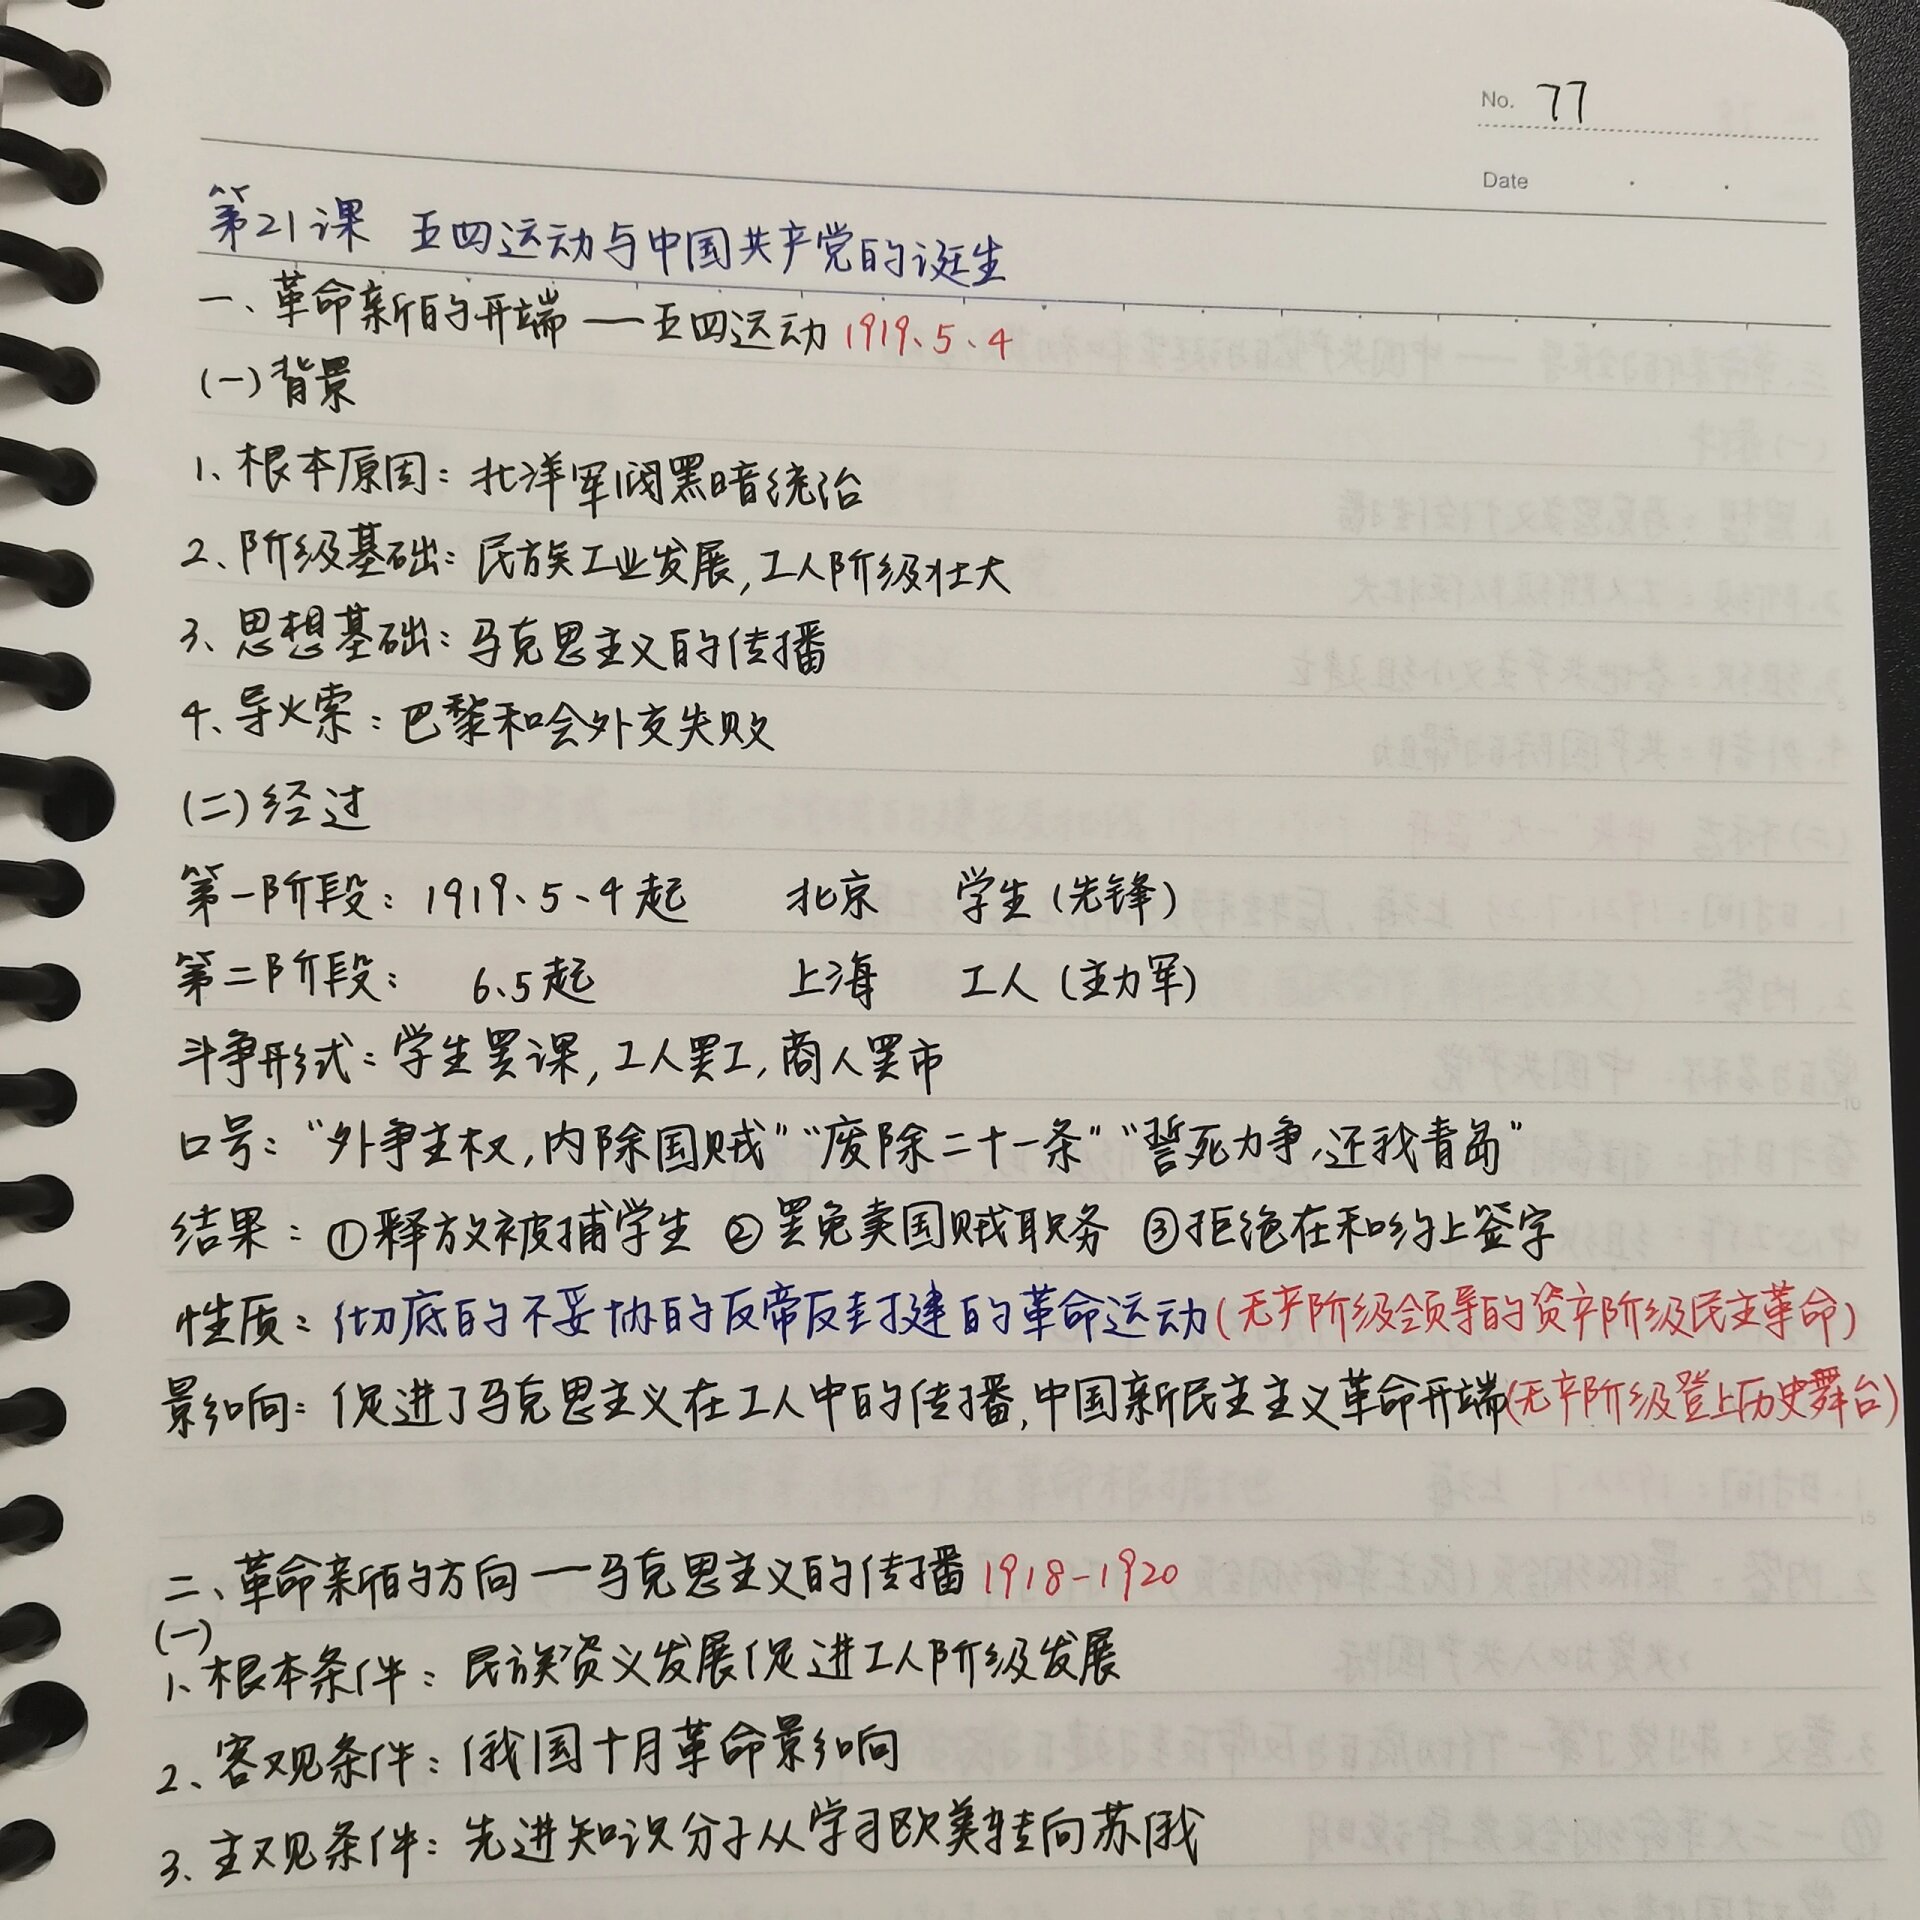 No. 77
Date
第21课 五四运动与中国共产党的诞生
一、革命新的开端——五四运动 1919、5、4
(一)背景
1、根本原因：北洋军阀黑暗统治
2、阶级基础：民族工业发展,工人阶级壮大
3、思想基础：马克思主义的传播
4、导火索：巴黎和会外交失败
(二)经过
第一阶段：1919、5、4起 北京 学生(先锋)
第二阶段： 6、5起 上海 工人(主力军)
斗争形式：学生罢课,工人罢工,商人罢市
口号：“外争主权,内除国贼”“废除二十一条”“誓死力争,还我青岛”
结果：①释放被捕学生 ②罢免卖国贼职务 ③拒绝在和约上签字
性质：彻底的不妥协的反帝反封建的革命运动(无产阶级领导的资产阶级民主革命)
影响：促进了马克思主义在工人中的传播,中国新民主主义革命开端(无产阶级登上历史舞台)
二、革命新的方向——马克思主义的传播 1918-1920
(一)
1、根本条件：民族资义发展促进工人阶级发展
2、客观条件：俄国十月革命影响
3、主观条件：先进知识分子从学习欧美转向苏俄